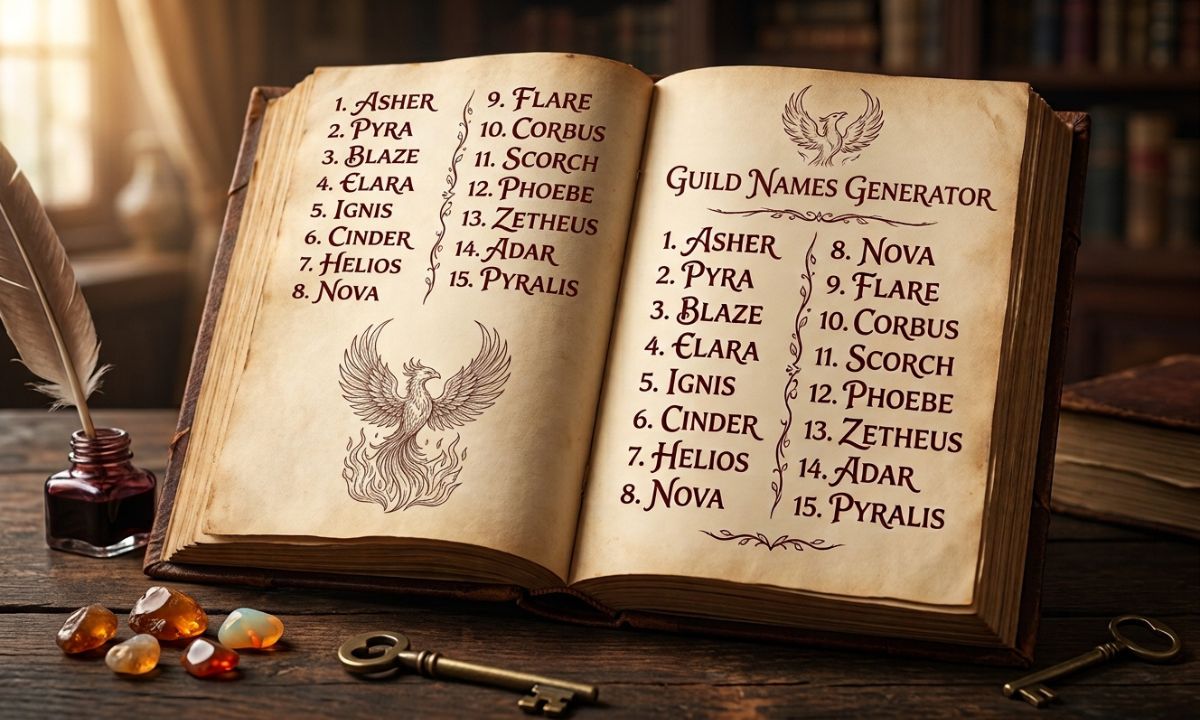 1. Asher
2. Pyra
3. Blaze
4. Elara
5. Ignis
6. Cinder
7. Helios
8. Nova
9. Flare
10. Corbus
11. Scorch
12. Phoebe
13. Zetheus
14. Adar
15. Pyralis
Guild Names Generator
1. Asher
2. Pyra
3. Blaze
4. Elara
5. Ignis
6. Cinder
7. Helios
8. Nova
8. Nova
9. Flare
10. Corbus
11. Scorch
12. Phoebe
13. Zetheus
14. Adar
15. Pyralis